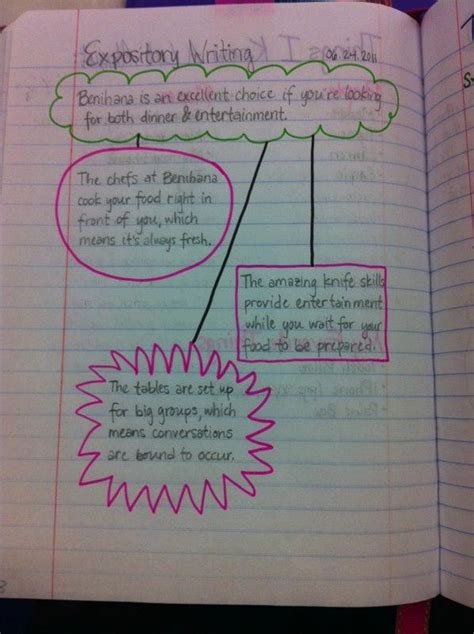 Expository Writing
06.24.2011
Benihana is an excellent choice if you're looking
for both dinner & entertainment.
The chefs at Benihana
cook your food right in
front of you, which
means it's always fresh.
The amazing knife skills
provide entertainment
while you wait for your
food to be prepared.
The tables are set up
for big groups, which
means conversations
are bound to occur.